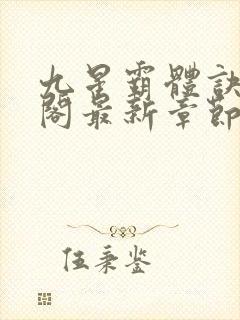 九星霸體訣
閣最新章節
伍秉鉴